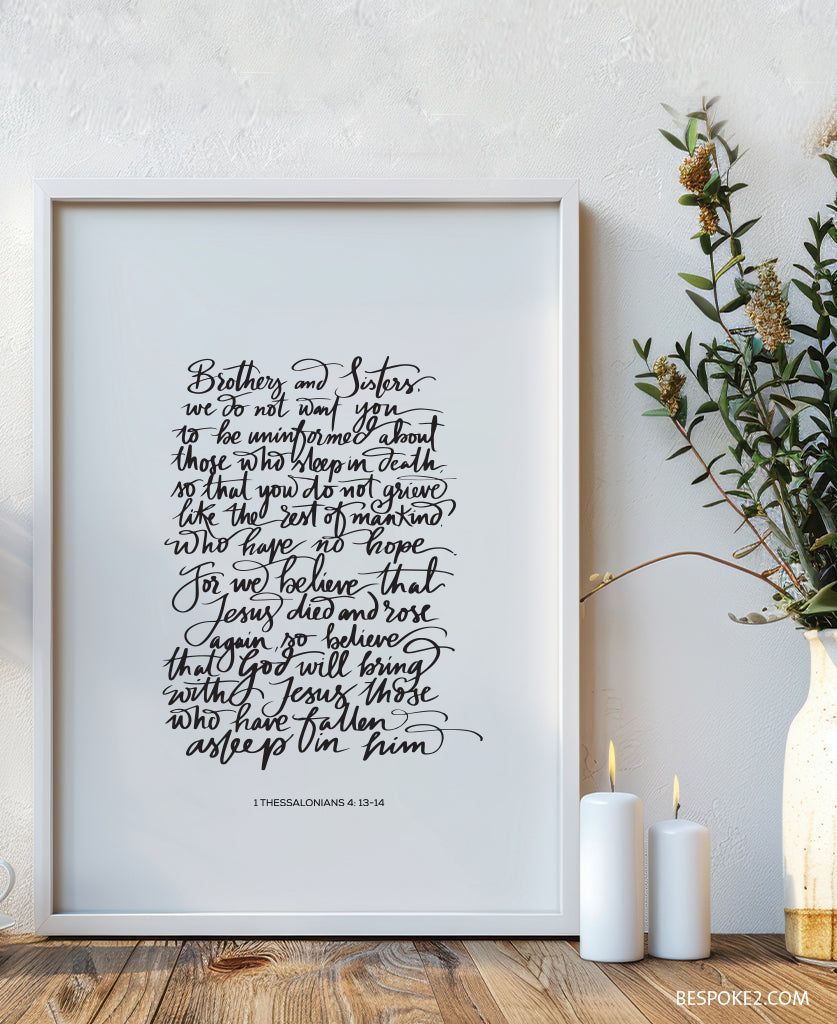 Brothers and Sisters,
we do not want you
to be uninformed about
those who sleep in death,
so that you do not grieve
like the rest of mankind,
who have no hope.
For we believe that
Jesus died and rose
again, so believe
that God will bring
with Jesus those
who have fallen
asleep in him
1 THESSALONIANS 4: 13-14
BESPOKE2.COM